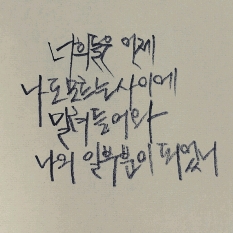 너희들은 언제
나도 모르는 사이에
밀려들어와
나의 일부분이 되었니